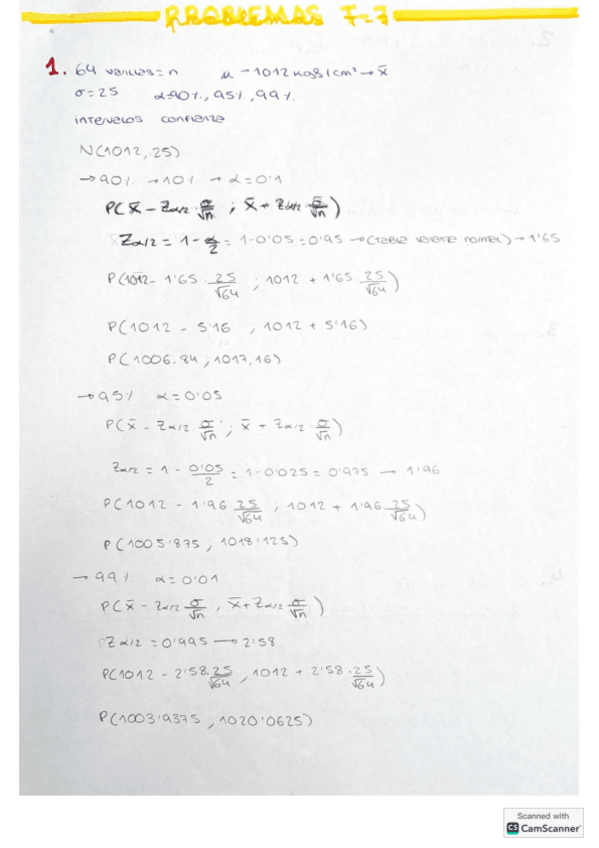 PROBLEMAS 7=7
1. 64 varillas = n μ - 1012 kgs/cm² → x̄
σ = 25 α=90%, 95%, 99%
intervalos confianza
N(1012, 25)
→ 90% → 10% → α = 0'1
P(x̄ - Zα/2 · σ/√n ; x̄ + Zα/2 · σ/√n)
Zα/2 = 1 - α/2 = 1 - 0'05 = 0'95 → (tabla normal) → 1'65
P(1012 - 1'65 · 25/√64 ; 1012 + 1'65 · 25/√64)
P(1012 - 5'16 , 1012 + 5'16)
P(1006.84 ; 1017,16)
→ 95% α = 0'05
P(x̄ - Zα/2 · σ/√n ; x̄ + Zα/2 · σ/√n)
Zα/2 = 1 - 0'05/2 = 1 - 0'025 = 0'975 → 1'96
P(1012 - 1'96 25/√64 ; 1012 + 1'96 25/√64)
P(1005'875 , 1018'125)
→ 99% α = 0'01
P(x̄ - Zα/2 σ/√n , x̄ + Zα/2 σ/√n)
Zα/2 = 0'995 → 2'58
P(1012 - 2'58 · 25/√64 , 1012 + 2'58 · 25/√64)
P(1003'9375 , 1020'0625)
Scanned with
CS CamScanner